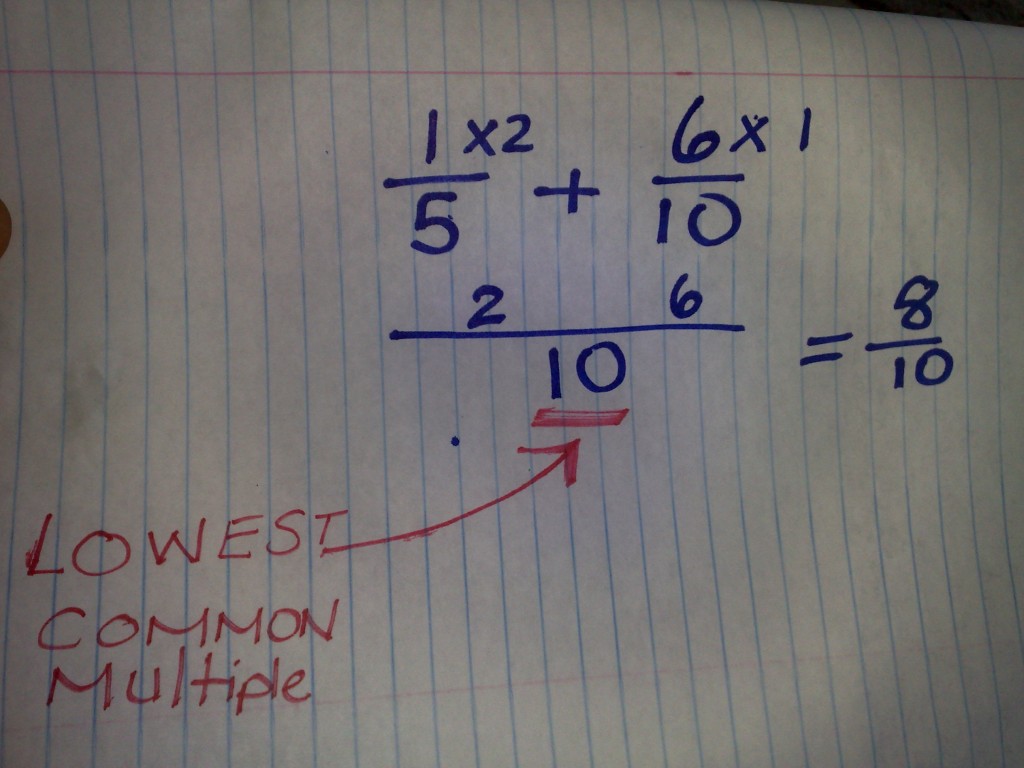 1 x2 6 x 1
5 + 10
2 6
10 = 8
10
LOWEST
COMMON
Multiple